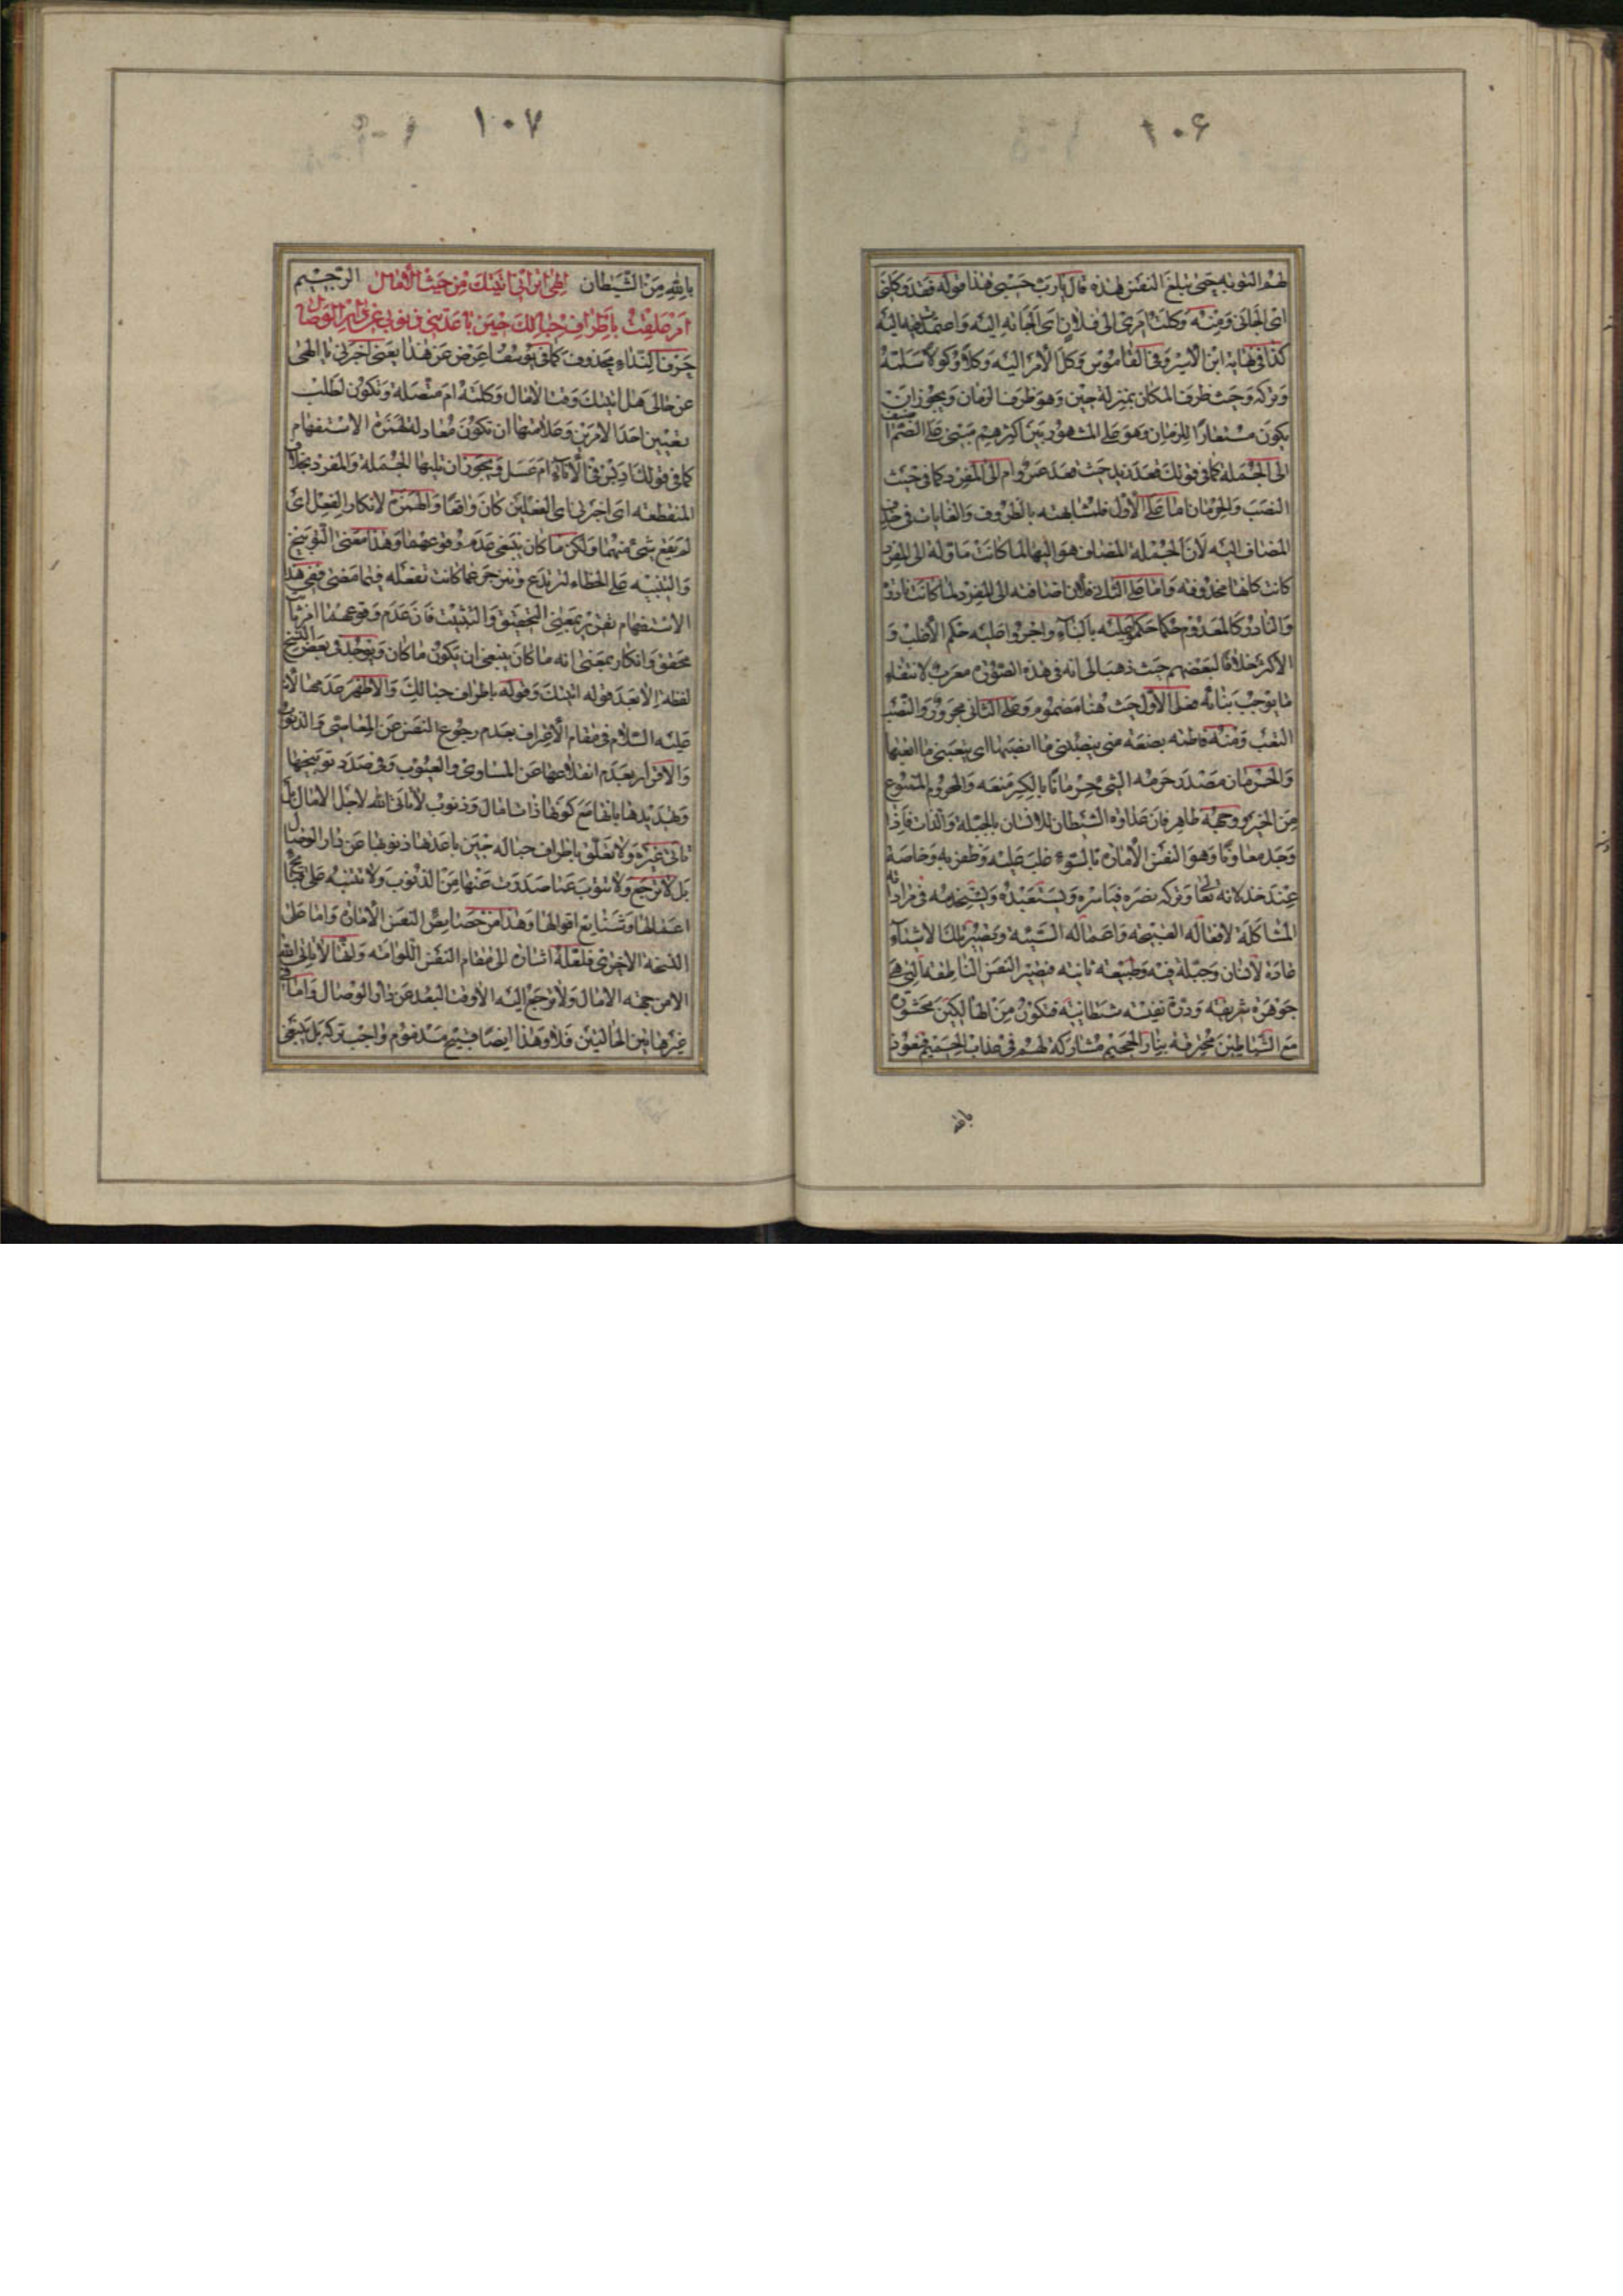 ١٠۶
لهم التوبة حتى تبلغ النفس لهذه قال يا رب حسبي هذا قوله فقد وكلني
اى الجانى ومنه وكلت امرى الى فلان اى الجاته اليه واعتمدت فيه اليه
كذا فى نهاية ابن الاثير وفى القاموس وكل الامر اليه وكلا ووكولا سلمه
وتركه وحيث ظرف المكان بمنزلة حين وهو ظرف الزمان ويجوز ان
يكون مستعارا للزمان وهو على المشهور بين اكثرهم مبنى على الضم
الى الجملة كما فى قولك قعد زيد حيث قعد عمرو ام الى المفرد كما فى حيث
النصب والحرمان اما على الاول فلمشابهته بالظروف والغايات فى حذف
المضاف اليه لان الجملة المضاف هو اليها لما كانت ماولة الى المفرد
كانت كانها محذوفة واما على الثانى فلان اضافته الى المفرد لما كانت نادرة
والنادر كالمعدوم حكما حكم عليه بالبناء واجروا عليه حكم الاغلب و
الاكثر خلافا لبعضهم حيث ذهب الى انه فى هذه الصورة معرب لانتفاء
ما يوجب بنائه فعلى الاول حيث هنا مضموم وعلى الثانى مجرور والنصب
التعب ومنه فاطمة بضعة منى ينصبنى ما انصبها اى يتعبنى ما اتعبها
والحرمان مصدر حرمه الشئ حرمانا بالكسر منعه والمحروم الممنوع
من الخير ووجهه ظاهر فان عداوة الشيطان للانسان بالجبلة والذات فاذا
وجد معاونا وهو النفس الامارة بالسوء غلب عليه وظفر به وخاصة
عند خذلانه تعالى وتركه نصره فياسره ويستعبده ويستخدمه فى مراداته
المشاكلة لافعاله القبيحة واعماله السيئة ويصير تلك الاشياء
عادة لانسان وجبلة فيه وطبيعة ثانية فتصير النفس الناطقة التى هى
جوهرة شريفة ودرة نفيسة شيطانية فتكون من الهالكين محشورة
مع الشياطين محرقة بنار الجحيم مشاركة لهم فى عذاب الحميم فنعوذ
بالله
١٠٧
بالله من الشيطان الرجيم الهى اترانى ما اتيتك من حيث الامال
ام علقت باطراف حبالك حين باعدتنى ذنوبى عن دار الوصال
حرف النداء محذوف كما فى يوسف اعرض عن هذا يعنى اخبرنى يا الهى
عن حالى هل اتيتك وقت الامال وكلمة ام متصلة وتكون لطلب
تعيين احد الامرين وعلامتها ان تكون معادلة لهمزة الاستفهام
كما فى قولك ادبس فى الاناء ام عسل ويجوز ان تليها الجملة والمفرد بخلاف
المنقطعة اى اخبرنى اى الفعلين كان واقعا والهمزة لانكار الفعل اى
لم يقع شئ منهما ولكن ما كان ينبغى عدم وقوعهما وهذا معنى التوبيخ
والتنبيه على الخطاء لترتدع وتنزجر عما كانت تفعله فيما مضى ففى هذا
الاستفهام تقرير بمعنى التحقيق والتثبيت فان عدم وقوعهما امر ثابت
محقق وانكار بمعنى انه ما كان ينبغى ان يكون ما كان ويوجد فى بعض النسخ
لفظة الا بعد قوله اتيتك وقوله باطراف حبالك والاظهر عدمها لانه
عليه السلام فى مقام الاعتراف بعدم رجوع النفس عن المعاصى والذنوب
والاقرار بعدم انقلاعها عن المساوى والعيوب وفى صدد توبيخها
وتهديدها بانها مع كونها ذات امال وذنوب لا تاتى الله لاجل الامال بل
تاتى غيره ولا تعلق باطراف حباله حين باعدها ذنوبها عن دار الوصال
بل لا ترجع ولا تتوب عما صدرت عنها من الذنوب ولا تتنبه على قبايح
اعمالها وشنايع اقوالها وهذا من خصايص النفس الامارة واما على
النسخة الاخرى فلعله اشارة الى مقام النفس اللوامة وانها لا تاتى الله
الا من جهة الامال ولا ترجع اليه الا وقت البعد عن دار الوصال واما فى
غيرهاتين الحالتين فلا وهذا ايضا قبيح مذموم واجب تركه بل ينبغى